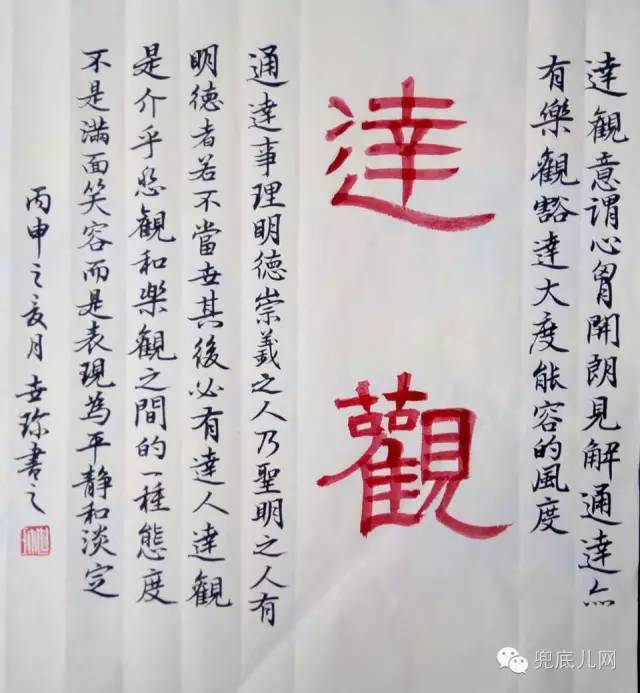 達觀意谓心胷開朗見解通達亦
有樂觀豁達大度能容的風度
達觀
通達事理明德崇義之人乃聖明之人有
明德者若不當世其後必有達人達觀
是介乎悲觀和樂觀之間的一種態度
不是满面笑容而是表現為平静和淡定
丙申之亥月 世珍書之
兜底儿网